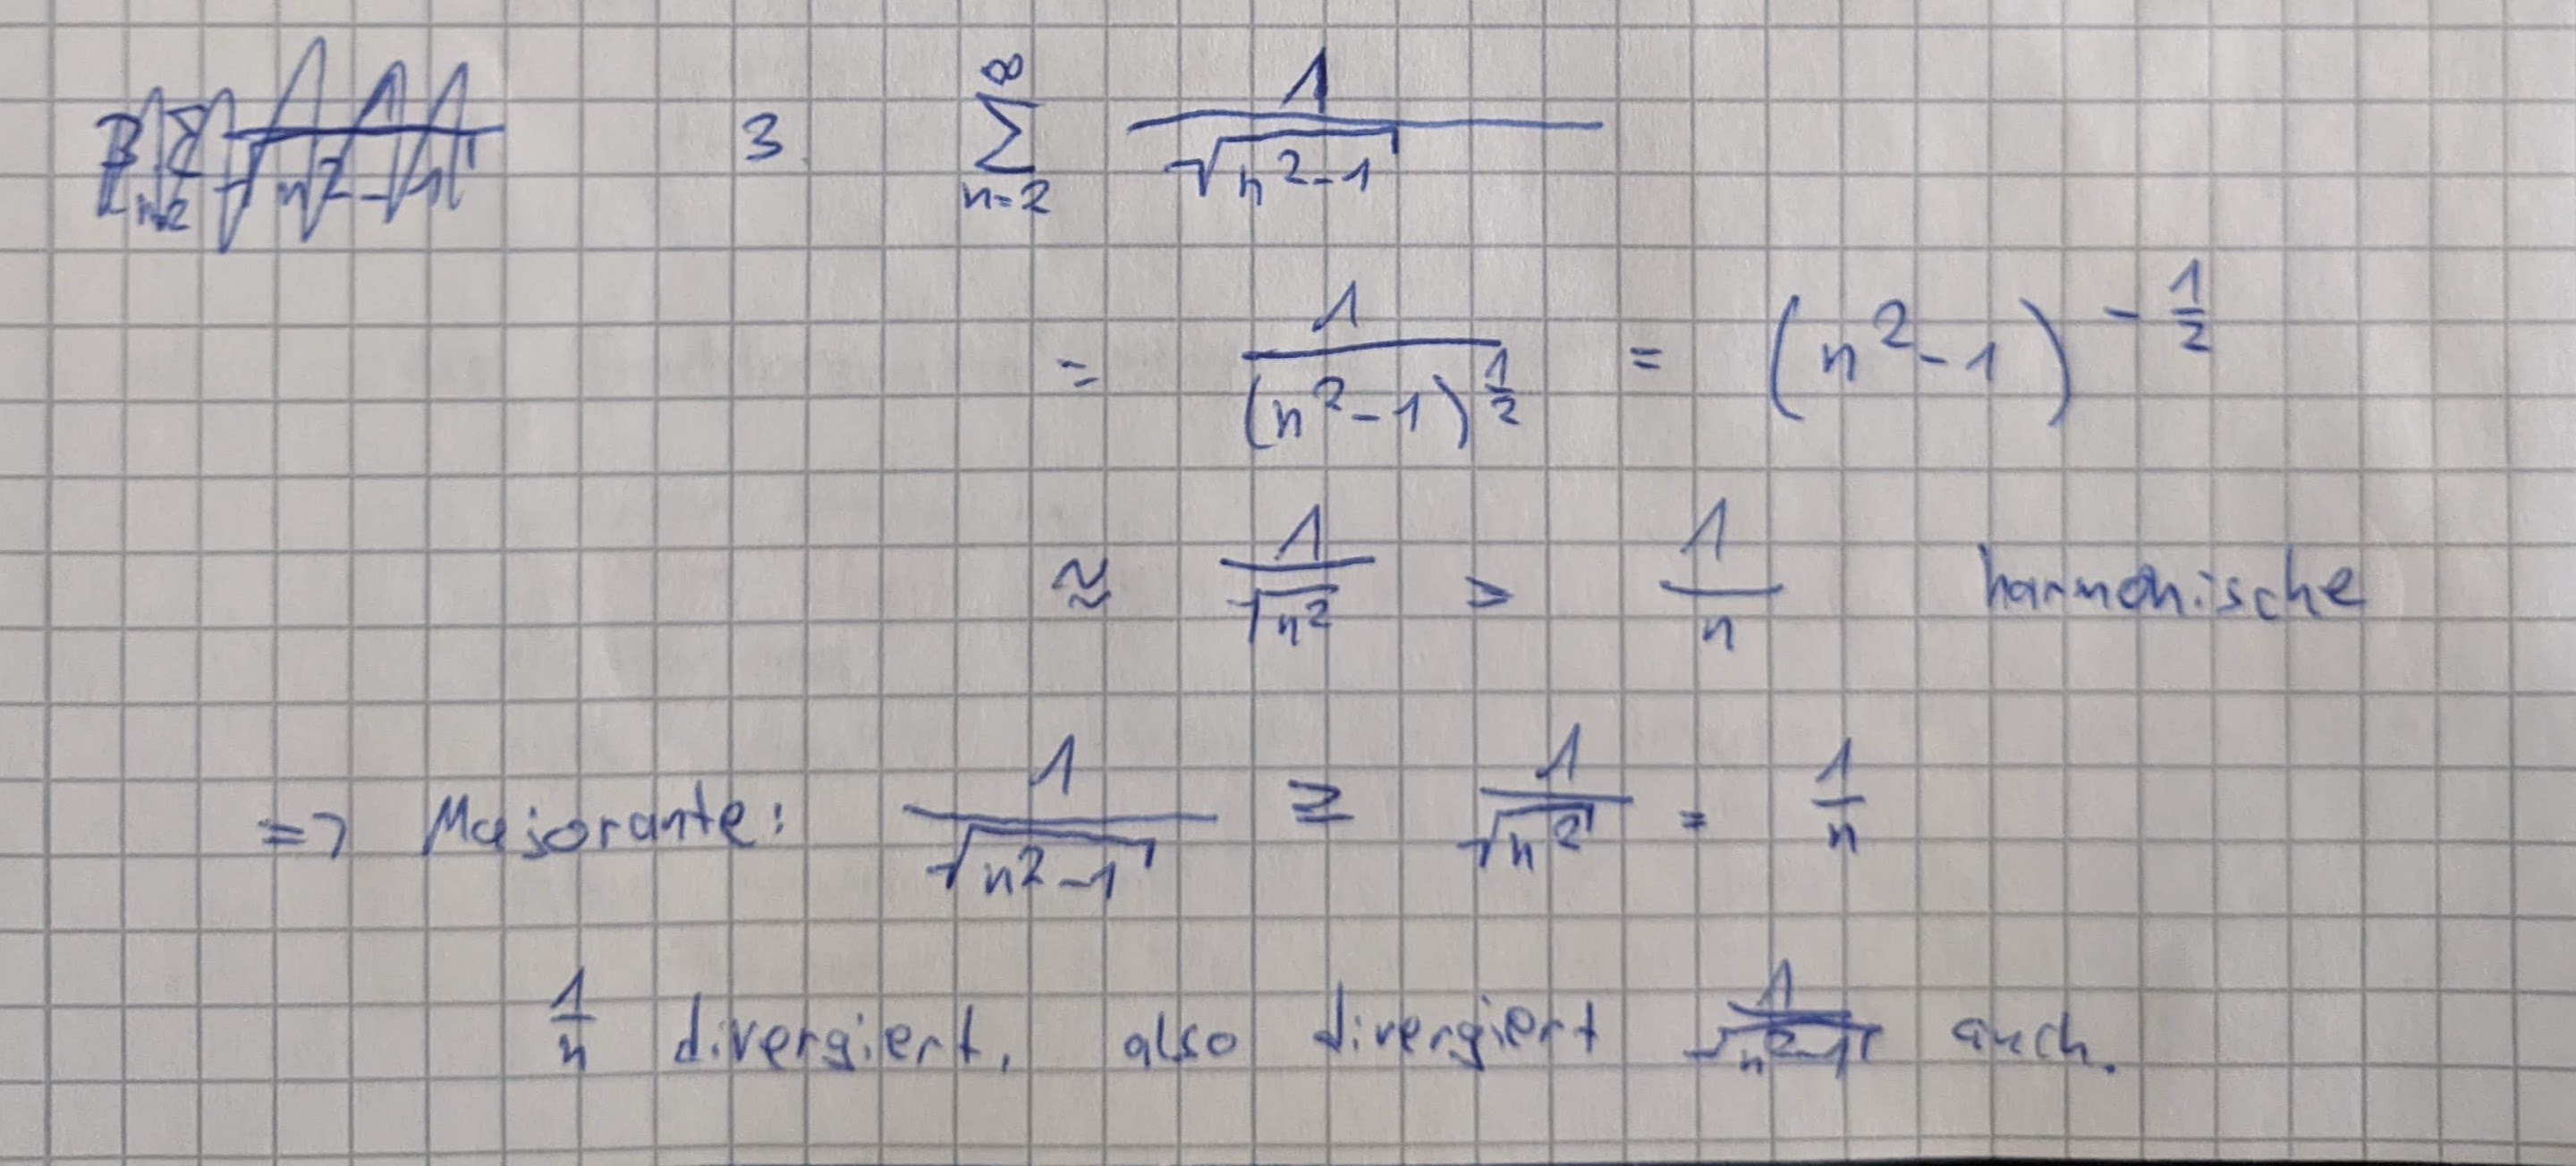 3. ∑_{n=2}^{∞} 1/√(n²-1)
= 1/(n²-1)^{1/2} = (n²-1)^{-1/2}
≈ 1/√(n²) > 1/n harmonische
=> Majorante: 1/√(n²-1) ≥ 1/√(n²) = 1/n
1/n divergiert, also divergiert 1/√(n²-1) auch.